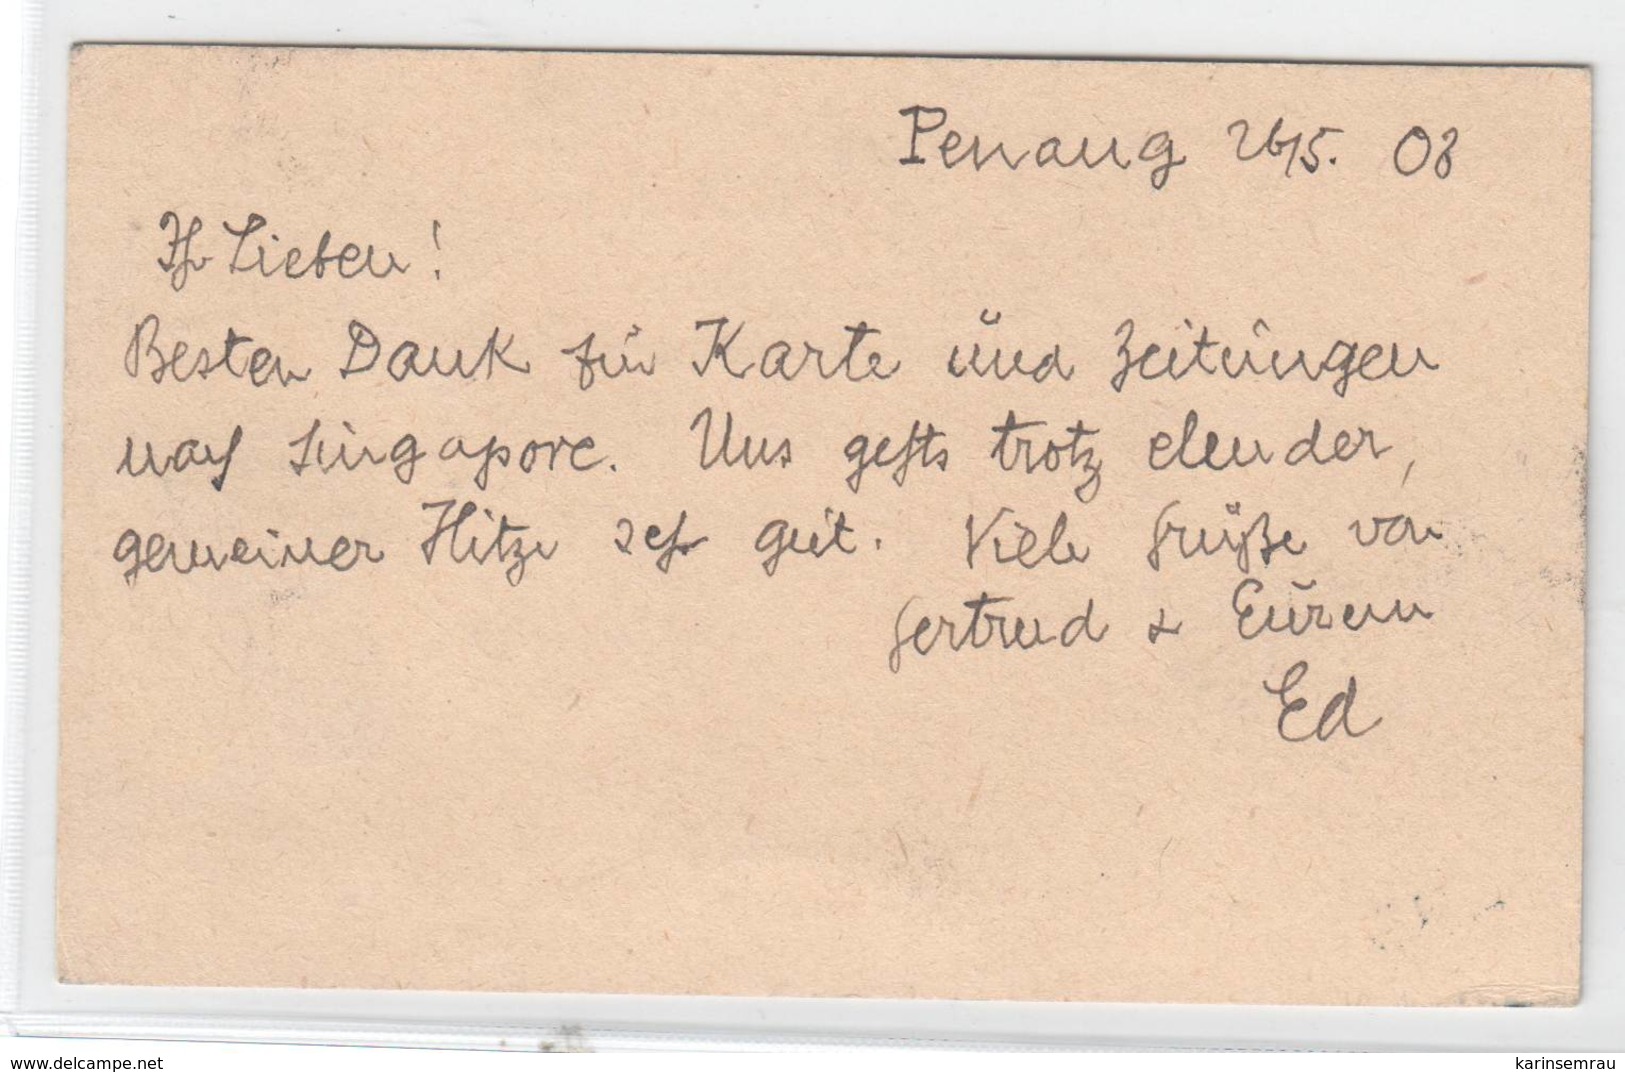 Penang 26/5. 08
Ihr Lieben!
Besten Dank für Karte und Zeitungen
nach Singapore. Uns gehts trotz elender,
gemeiner Hitze sehr gut. Viele Grüße von
Gertrud & Eurem
Ed
www.delcampe.net
karinsemrau